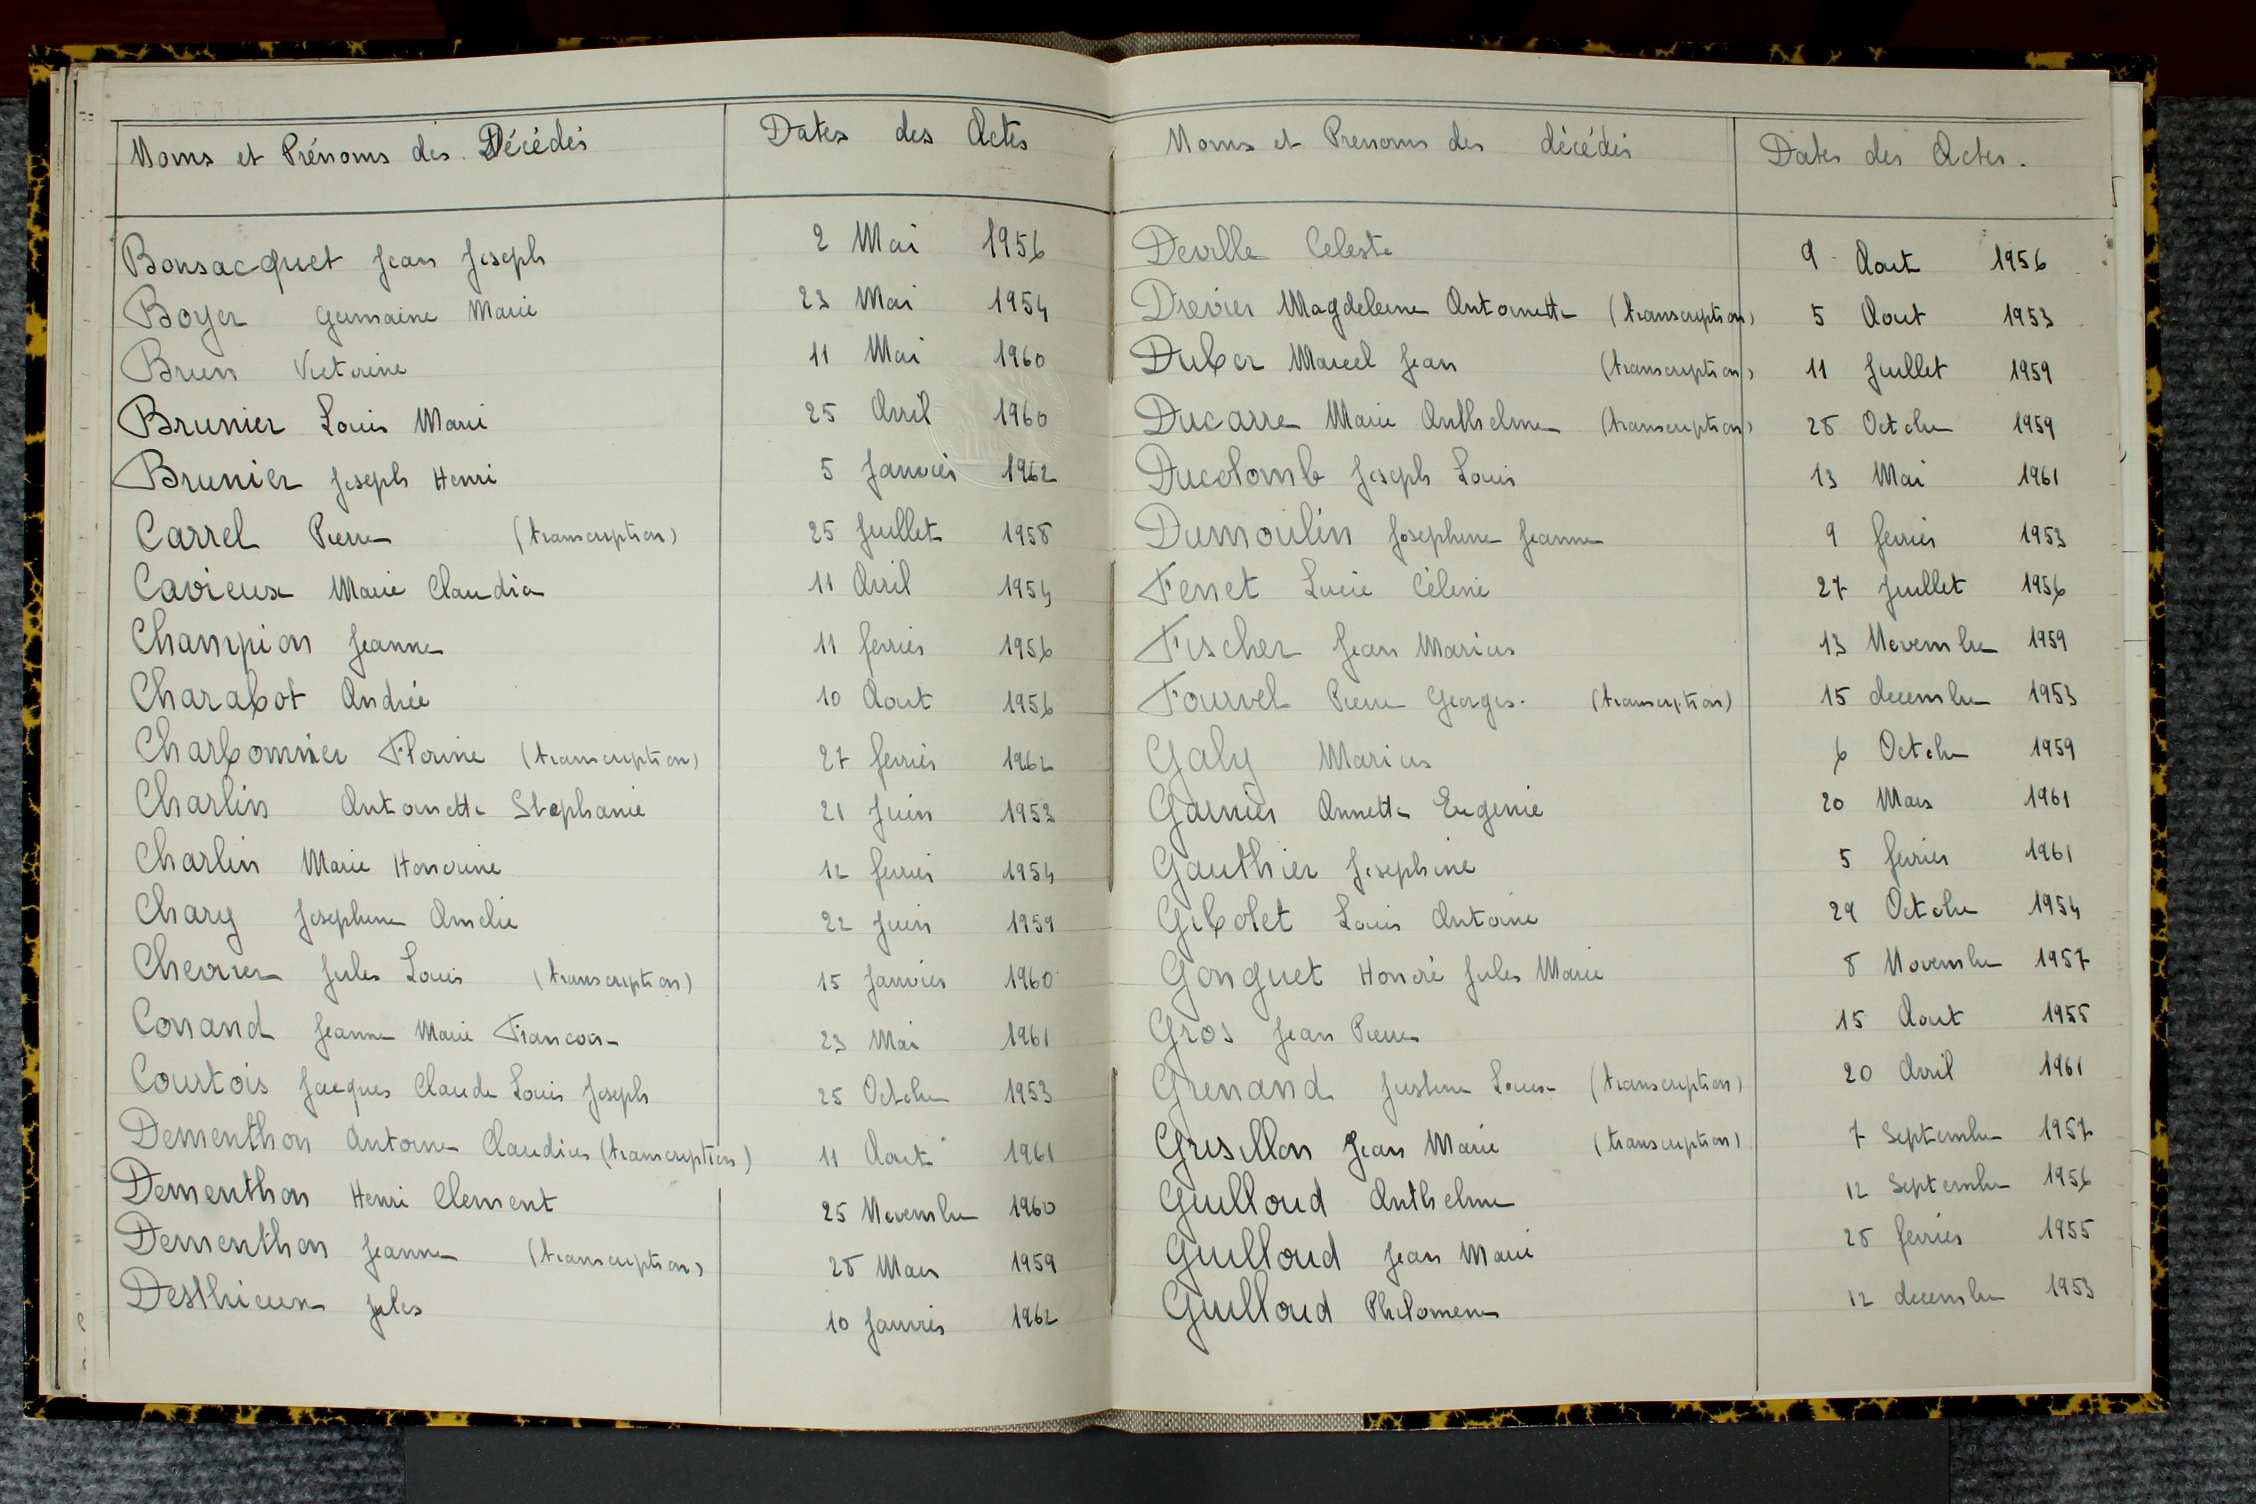 Noms et Prénoms des Décédés Dates des Actes
Bonsacquet Jean Joseph 2 Mai 1956
Boyer Germaine Marie 23 Mai 1954
Brun Victorine 11 Mai 1960
Brunier Louis Marie 25 Avril 1960
Brunier Joseph Henri 5 Janvier 1962
Carrel Pierre (transcription) 25 Juillet 1958
Cavieux Marie Claudia 11 Avril 1954
Champion Jeanne 11 fevrier 1956
Charabot Andrée 10 Aout 1956
Charbonnier Florine (transcription) 27 fevrier 1962
Charlin Antoinette Stephanie 21 Juin 1953
Charlin Marie Honorine 12 fevrier 1954
Chary Josephine Amelie 22 Juin 1959
Chevrier Jules Louis (transcription) 15 Janvier 1960
Conand Jeanne Marie Francoise 23 Mai 1961
Courtois Jacques Claude Louis Joseph 25 Octobre 1953
Dementhon Antoine Claudius (transcription) 11 Aout 1961
Dementhon Henri Clement 25 Novembre 1960
Dementhon Jeanne (transcription) 28 Mars 1959
Desthieux Jules 10 Janvier 1962
Noms et Prenoms des décédés Dates des Actes.
Deville Celeste 9 Aout 1956
Drevier Magdeleine Antoinette (transcription) 5 Aout 1953
Duber Marcel Jean (transcription) 11 Juillet 1959
Ducarre Marie Anthelme (transcription) 28 Octobre 1959
Ducolomb Joseph Louis 13 Mai 1961
Dumoulin Josephine Jeanne 9 fevrier 1953
Ferret Lucie Céline 27 Juillet 1956
Fischer Jean Marius 13 Novembre 1959
Fourvel Pierre Georges. (transcription) 15 decembre 1953
Galy Marius 6 Octobre 1959
Garnier Annette Eugenie 20 Mars 1961
Gauthier Josephine 5 fevrier 1961
Gibolet Louis Antoine 29 Octobre 1954
Gonguet Honoré Jules Marie 8 Novembre 1957
Gros Jean Pierre 15 Aout 1955
Grenand Justine Louise (transcription) 20 Avril 1961
Grisillon Jean Marie (transcription) 7 Septembre 1957
Guilloud Anthelme 12 Septembre 1956
Guilloud Jean Marie 28 fevrier 1955
Guilloud Philomene 12 decembre 1953